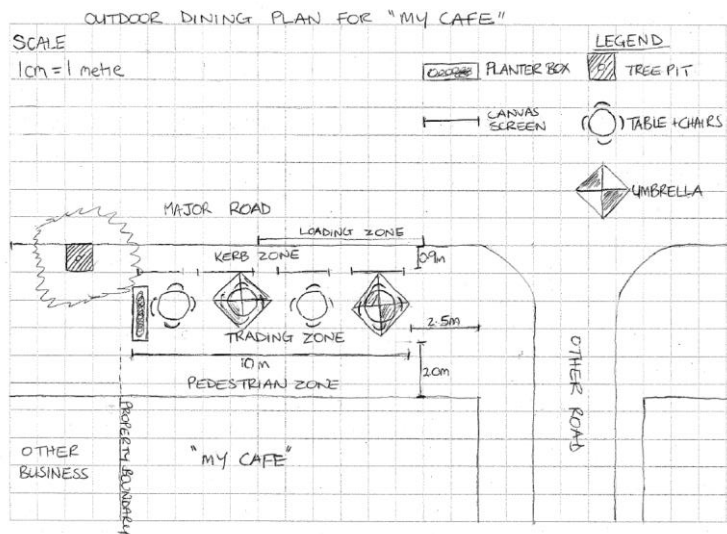 OUTDOOR DINING PLAN FOR "MY CAFE"
SCALE
1cm = 1 metre
LEGEND
PLANTER BOX
TREE PIT
CANVAS
SCREEN
TABLE + CHAIRS
UMBRELLA
MAJOR ROAD
LOADING ZONE
KERB ZONE
0.9m
TRADING ZONE
2.5m
10m
2.0m
PEDESTRIAN ZONE
OTHER ROAD
PROPERTY BOUNDARY
OTHER
BUSINESS
"MY CAFE"